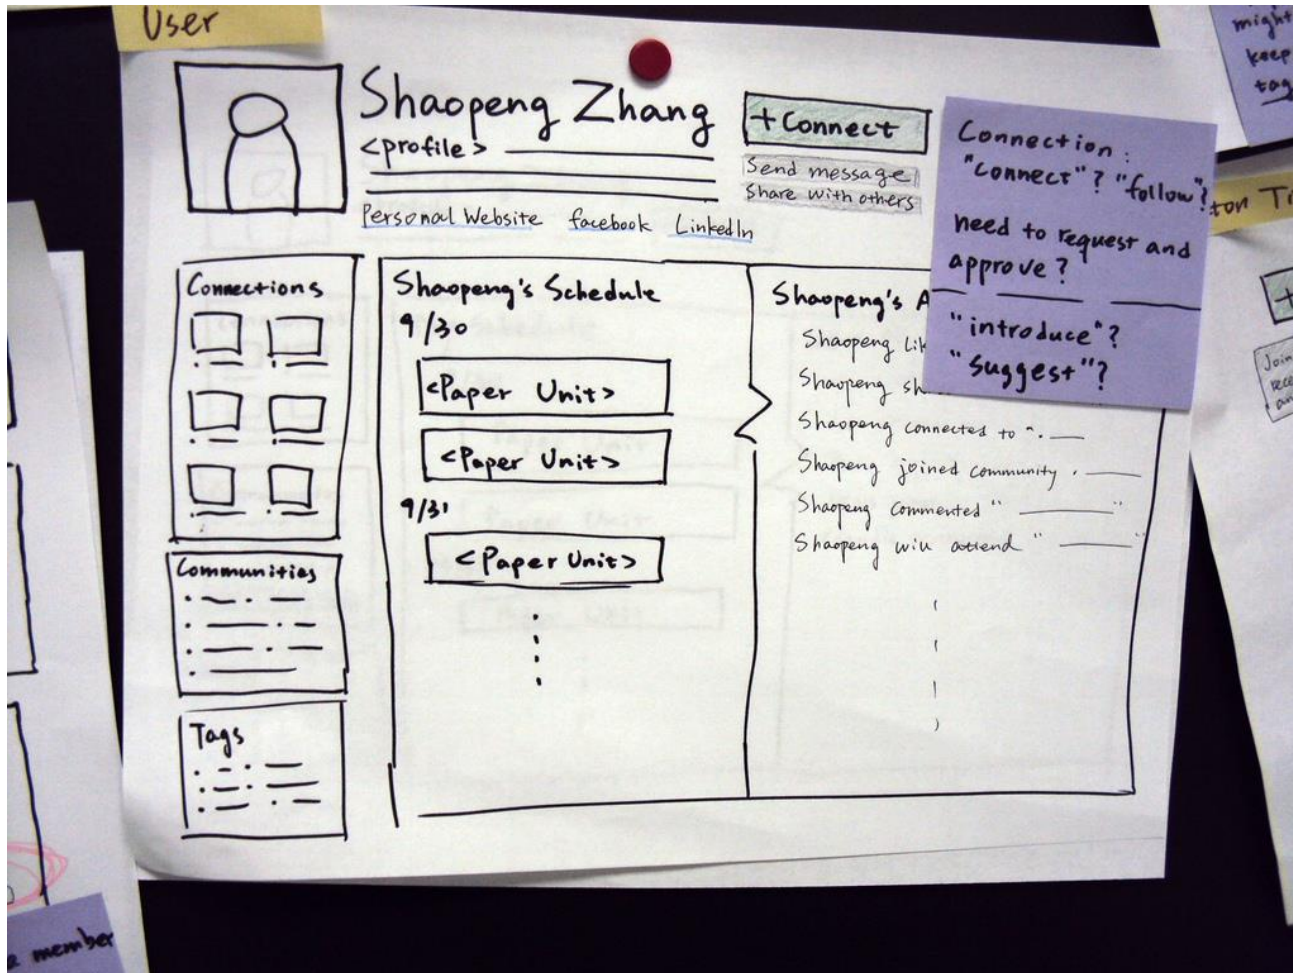 User
Shaopeng Zhang
<profile>
Personal Website facebook LinkedIn
+ Connect
Send message
Share with others
Connection:
"connect"? "follow"?
need to request and
approve?
"introduce"?
"suggest"?
Connections
Communities
Tags
Shaopeng's Schedule
9/30
<Paper Unit>
<Paper Unit>
9/31
<Paper Unit>
Shaopeng's A
Shaopeng Lik
Shaopeng sh
Shaopeng connected to
Shaopeng joined community
Shaopeng commented " "
Shaopeng will attend " "
might
keep
tag
member